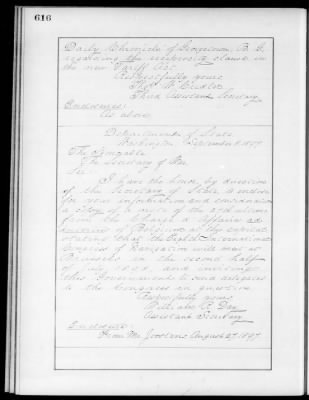 616
Daily Chronicle of Georgetown, B. G.
regarding the reciprocity clause in
the new Tariff Act.
Respectfully yours
Thos. W. Cridler
Third Assistant Secretary.
Enclosures:
As above.
Department of State.
Washington, September 8, 1897.
The Honorable
The Secretary of War.
Sir:
I have the honor, by direction
of the Secretary of State, to enclose
for your information and consideration
a copy of a note of the 27th ultimo
from the Chargé d'Affaires ad
interim of Belgium at this capital
stating that the Eighth International
Congress of Navigation will meet at
Brussels in the second half
of July 1898, and inviting
this Government to send delegates
to the Congress in question.
Respectfully yours
William R. Day
Assistant Secretary
Enclosure:
From Mr. August 27, 1897.